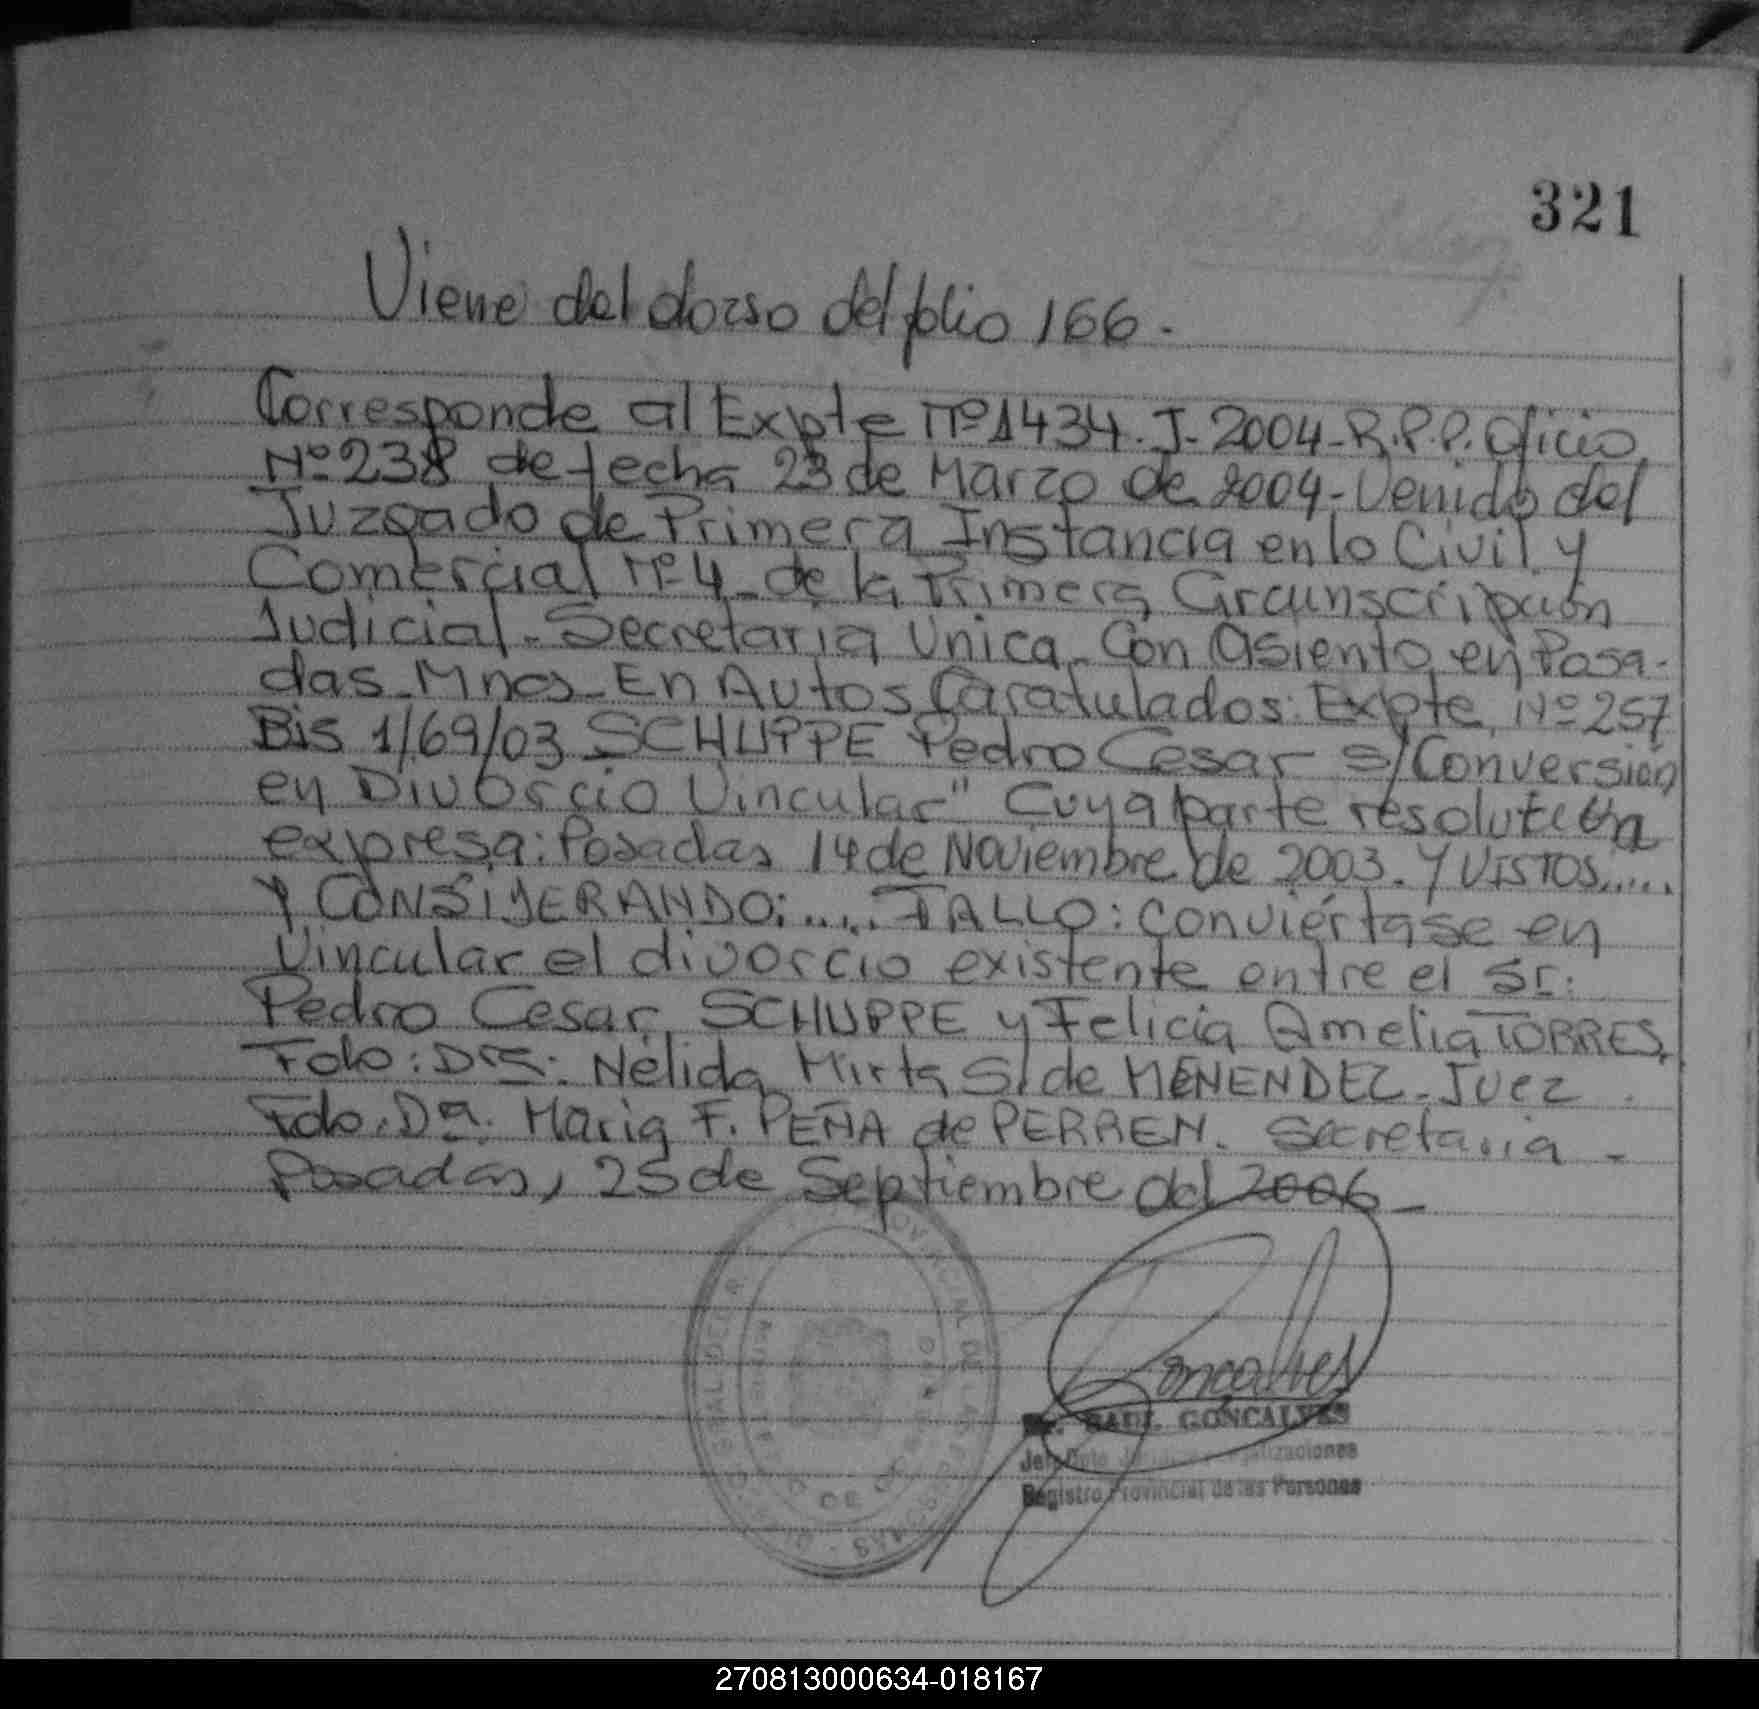 321
Viene del dorso del folio 166.
Corresponde al Expte Nº 1434. J- 2004-R.P.P. Oficio
Nº 238 de fecha 23 de Marzo de 2004- Venido del
Juzgado de Primera Instancia en lo Civil y
Comercial Nº 4 - de la Primera Circunscripción
Judicial - Secretaria Unica - Con asiento en Posa-
das - Mnes - En Autos Caratulados: Expte, Nº 257
Bis 1/69/03 SCHUPPE Pedro Cesar s/Conversión
en Divorcio Vincular" Cuya parte resolutiva
expresa: Posadas 14 de Noviembre de 2003. Y VISTOS.....
Y CONSIDERANDO:..... FALLO: conviértase en
Vincular el divorcio existente entre el Sr:
Pedro Cesar, SCHUPPE y Felicia Amelia TORRES,
Fdo: Dra: Nélida Mirta S/de MENENDEZ - Juez
Fdo. Dra. Maria F. PEÑA de PERREN. Secretaria -
Posadas, 25 de Septiembre del 2006 -
Goncalves
RAUL GONCALVES
Registro Provincial de las Personas
270813000634-018167